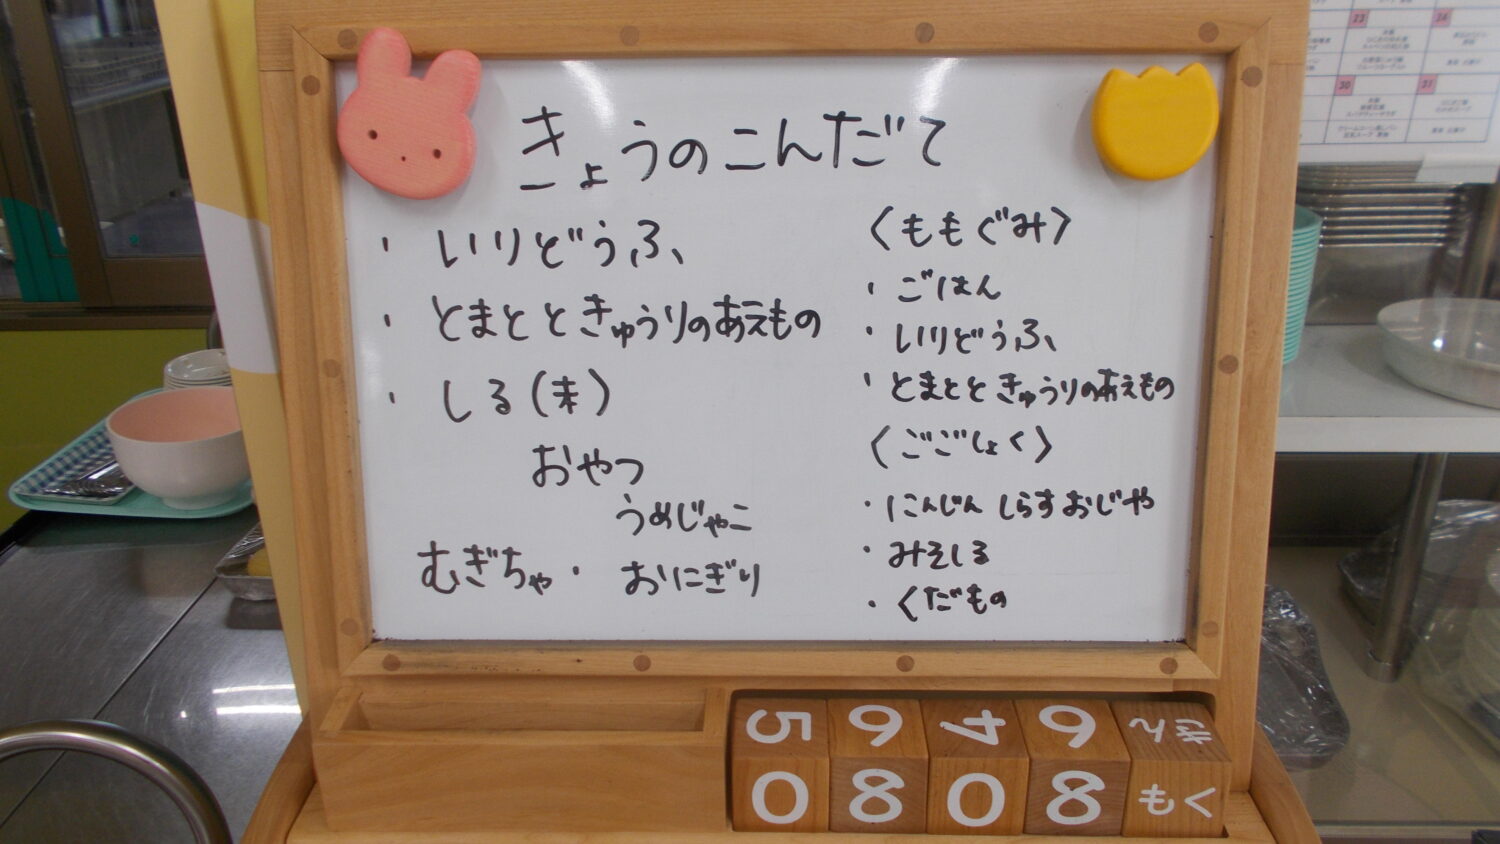 きょうのこんだて
・いりどうふ
・とまとときゅうりのあえもの
・しる(末)
おやつ
うめじゃこ
むぎちゃ・おにぎり
〈ももぐみ〉
・ごはん
・いりどうふ
・とまとときゅうりのあえもの
〈ごごしょく〉
・にんじんしらすおじや
・みそしる
・くだもの
5 6 4 6 きん
0 8 0 8 もく
23
24
30
31